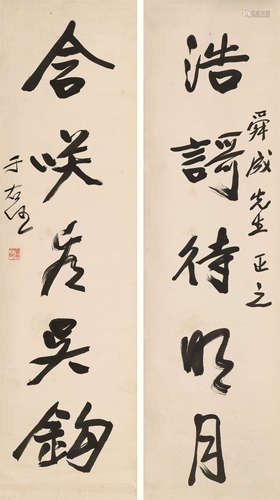 浩謌待明月
舜成先生正之
含咲看吴鈎
于右任